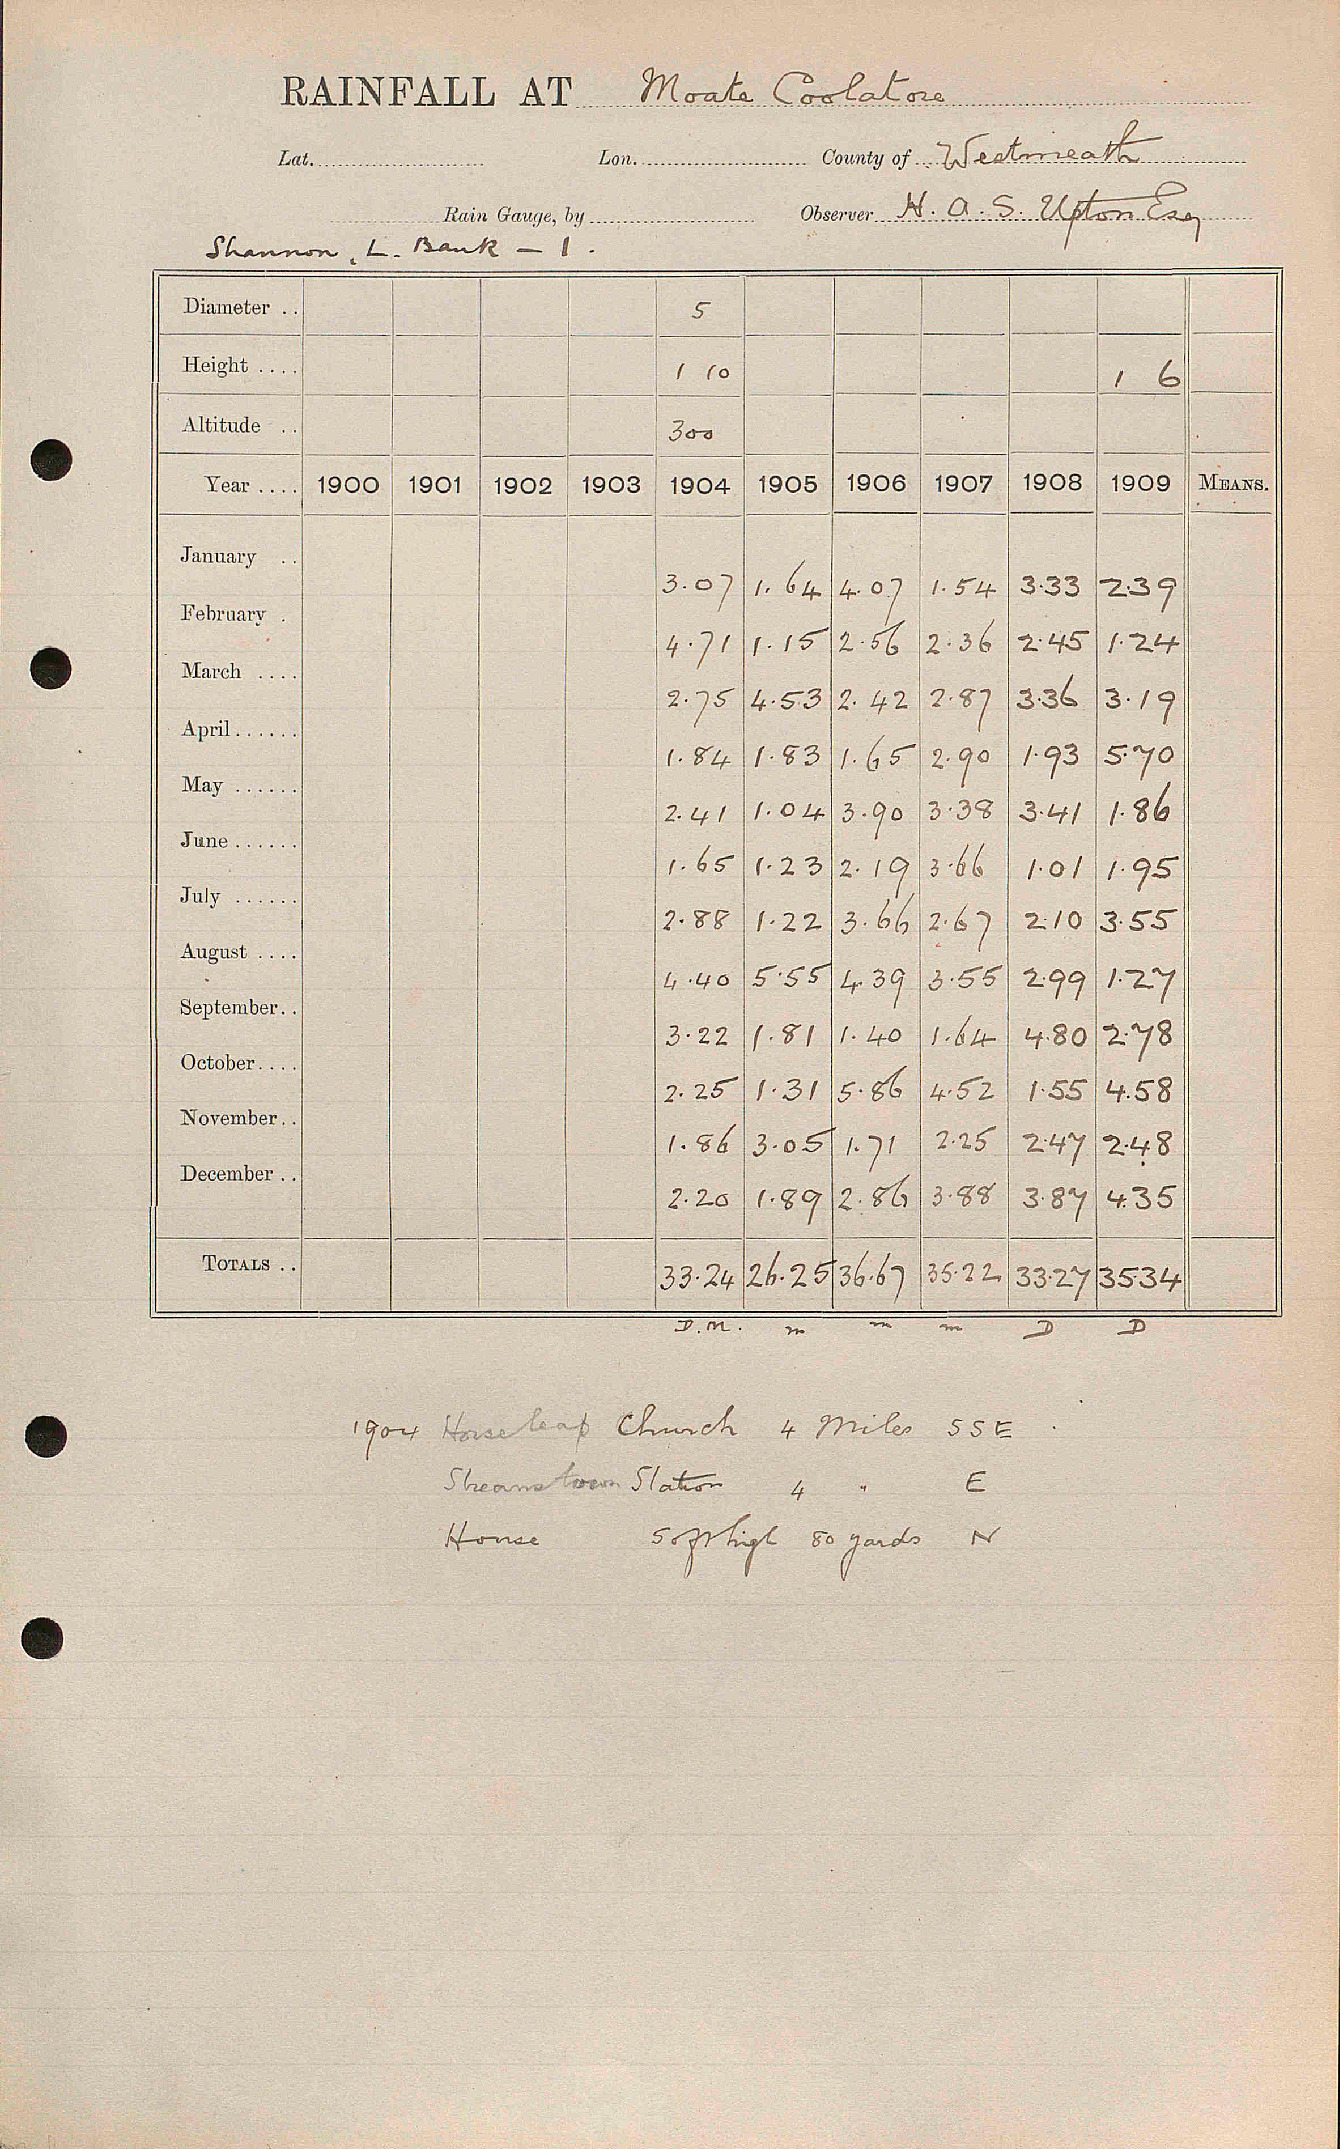 RAINFALL AT Moate Coolatore
Lat. Lon. County of Westmeath
Rain Gauge, by Observer H. A. S. Upton Esq
Shannon, L. Bank – 1.
Diameter .. 5
Height .... 1 10 1 6
Altitude .. 300
Year .... 1900 1901 1902 1903 1904 1905 1906 1907 1908 1909 MEANS.
January .. 3.07 1.64 4.07 1.54 3.33 2.39
February . 4.71 1.15 2.56 2.36 2.45 1.24
March .... 2.75 4.53 2.42 2.87 3.36 3.19
April ...... 1.84 1.83 1.65 2.90 1.93 5.70
May ...... 2.41 1.04 3.90 3.38 3.41 1.86
June ...... 1.65 1.23 2.19 3.66 1.01 1.95
July ...... 2.88 1.22 3.66 2.67 2.10 3.55
August .... 4.40 5.55 4.39 3.55 2.99 1.27
September.. 3.22 1.81 1.40 1.64 4.80 2.78
October.... 2.25 1.31 5.86 4.52 1.55 4.58
November.. 1.86 3.05 1.71 2.25 2.47 2.48
December .. 2.20 1.89 2.86 3.88 3.87 4.35
TOTALS .. 33.24 26.25 36.67 35.22 33.27 35.34
D.M. m m m D D
1904 Horseleap Church 4 Miles SSE
Streamstown Station 4 " E
House 50 ft high 80 yards N